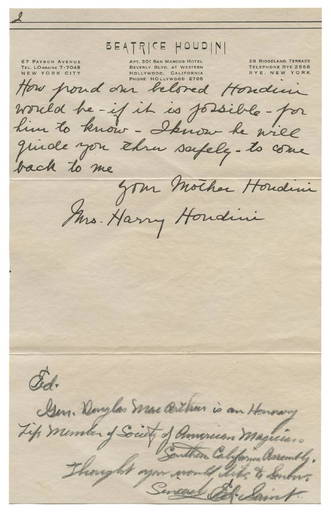 2
BEATRICE HOUDINI
67 PAYSON AVENUE
TEL. LORRAINE 7-7048
NEW YORK CITY
APT. 301 SAN MARCOS HOTEL
BEVERLY BLVD. AT WESTERN
HOLLYWOOD, CALIFORNIA
PHONE HOLLYWOOD 2786
28 RIDGELAND TERRACE
TELEPHONE RYE 2566
RYE, NEW YORK
How proud our beloved Houdini
would be - if it is possible - for
him to know - I know he will
guide you thru safely - to come
back to me
Your Mother Houdini
Mrs. Harry Houdini
Ed.
Gen. Douglas Mac Arthur is an Honorary
Life Member of Society of American Magicians
Southern California Assembly.
Thought you would like to know.
Ed. Saint